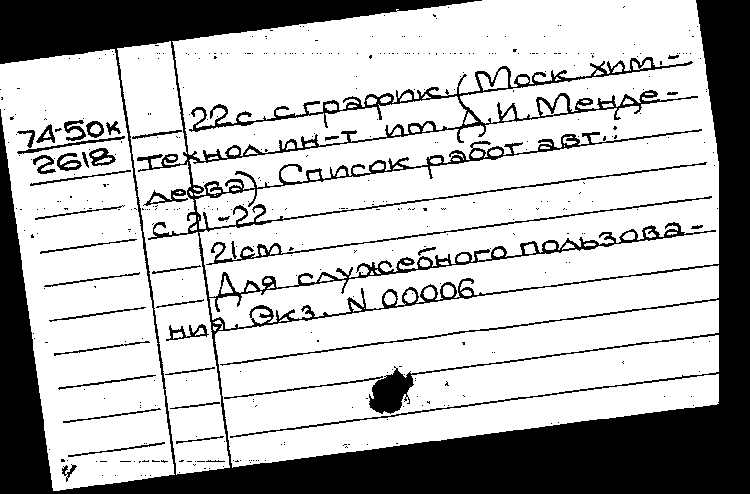 74-50к
2618
22с. с график. (Моск хим.-
технол. ин-т им. Д.И. Менде-
леева). Список работ авт.:
с. 21-22.
21см.
Для служебного пользова-
ния. Экз. N 00006.